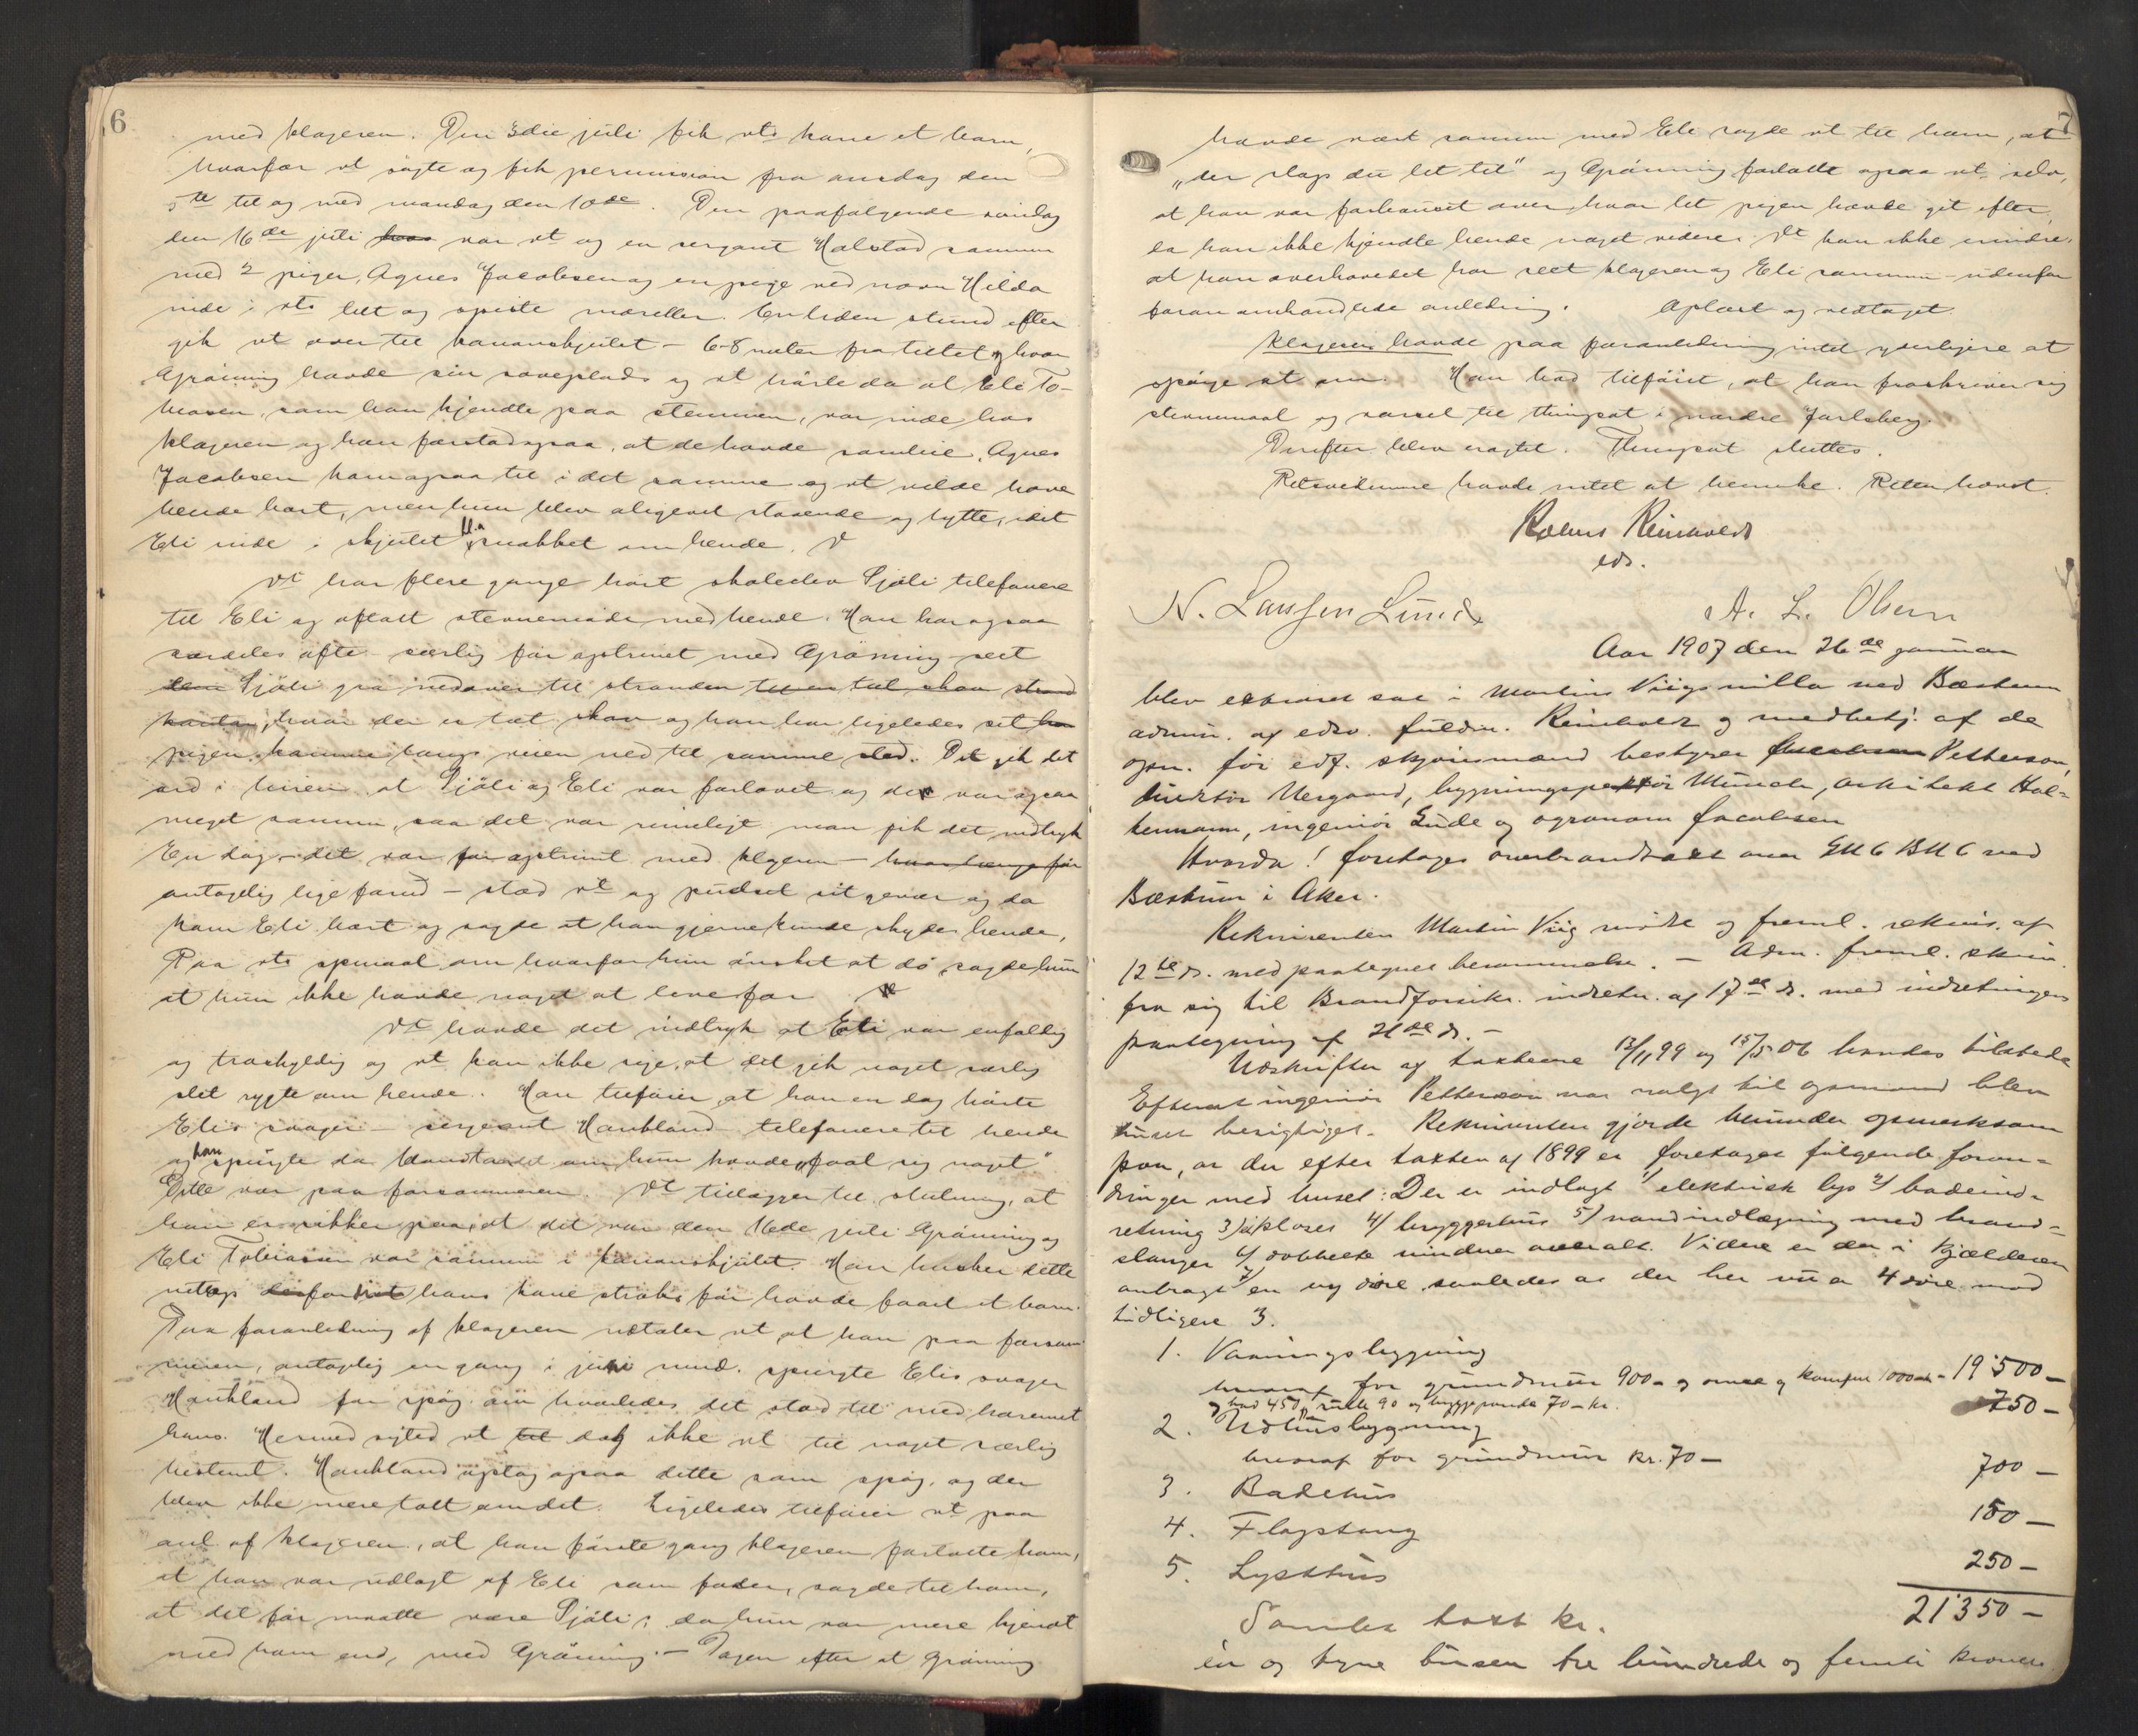 6
med klageren. Den 3die juli fik vts kone et barn,
hvorfor vt søgte og fik permission fra onsdag den
5te til og med mandag den 10de. Den paafølgende søndag
den 16de juli var vt og en sergant Halstad sammen
med 2 piger, Agnes Jacobsen og en pige ved navn Hilda
inde i vts telt og spiste moreller. En liden stund efter
gik vt over til kanonskjulet - 6-8 meter fra teltet og hvor
Grønning havde sin soveplads og vt hørte da at Eli To-
biasen, som han kjendte paa stemmen, var inde hos
klageren og han forstod ogsaa, at de havde samleie. Agnes
Jacobsen kom ogsaa til i det samme og vt vilde have
hende bort, men hun blev aligevel staaende og lytte, idet
Eli inde i skjulet snakket om hende.
Vt har flere gange hørt skoleelev Sjøli telefonere
til Eli og aftalt stevnemøde med hende. Han har ogsaa
særdeles ofte - særlig før optrinet med Grønning seet
Sjøli gaa nedover til stranden til en tæt skov strand
hvor der er tæt skov og han har ligeledes set
pigen komme langs veien ned til samme sted. Det gik det
ord i leiren at Sjøli og Eli var forlovet og de var ogsaa
meget sammen, saa det var rimeligt man fik det indtryk
En dag - det var før optrinet med klageren - hvor længe før
antagelig lige forud - stod vt og pudset sit gevær og da
kom Eli bort og sagde at han gjerne kunde skyde hende,
Paa vts spørsmaal om hvorfor hun ønsket at dø sagde hun
at hun ikke havde noget at leve for
Vt havde det indtryk at Eli var enfoldig
og troskyldig og vt kan ikke sige, at det gik noget særlig
slet rygte om hende. Han tilføier, at han en dag hørte
Elis svoger - sergeant Haukland - telefonere til hende
og han spurgte da om hun havde "faat sig noget"
Dette var paa forsommeren. Vt tilægger til slutning, at
han er sikker paa, at det var den 16de juli Grønning og
Eli Tobiassen var sammen i kanonskjulet. Han husker dette
netop hans kone straks før havde faaet et barn.
Paa foranledning af klageren udtaler vt at han paa forsom-
meren, antagelig en gang i juni mnd. spurgte Elis svoger
Haukland for spøg om hvorledes det stod til med haremet
hans. Hermed sigted vt dog ikke vt til noget særlig
bestemt. Haukland optog ogsaa dette som spøg, og der
blev ikke mere talt om det. Ligeledes tilføier vt paa
anl af klageren, at han første gang klageren fortalte ham,
at han var udlagt af Eli som fader, sagde til ham,
at det før maatte være Sjøli; da hun var mere kjendt
med ham end med Grønning. - Dagen efter at Grønning
7
havde vært sammen med Eli sagde vt til ham, at
"der slap du let til" og Grønning fortalte ogsaa vt selv,
at han var forbauset over, hvor let pigen havde git efter,
da han ikke kjendte hende noget videre. Vt kan ikke mindre,
at han overhovedet har seet klageren og Eli sammen udenfor
foranomhandlede anledning. Oplæst og vedtaget.
Klageren havde paa foranledning intet yderligere at
spørge vt om. Han bad tilføiet, at han fraskriver sig
stevnemaal og varsel til thingsvt i nordre Jarlsberg.
Derefter blev eragtet. Thingsvt sluttes.
Retsvidnerne havde intet at bemerke. Retten hævet.
Rolus Reinholdt
eds.
N. Laussen Lund A. L. Olsen
Aar 1907 den 26de januar
blev extraret sat i Martin Viigs villa ved Bæckum
admin. af edsv. fuldm. Reinholdt og medbetj. af de
opn. før edf. skjønsmænd bestyrer Petterson,
direktør Nergaard, bygningsinspektør Münch, arkitekt Hal-
kermann, ingeniør Gude og agronom Jacobsen
Hvorda! foretoges overbrandtakst over GN 6 BN 6 ved
Bæckum i Aker.
Rekvirenten Martin Viig mødte og freml. rekvis. af
12te ds. med paategnet berammelse. - Adm. freml. skriv.
fra sig til Brandforsikr. indretn. af 17de ds. med indretningens
paategning af 21de ds. -
Udskrifter af taxterne 13/11 99 og 15/5 06 havdes tilstede
Efterat ingeniør Petterson var valgt til opmand blev
huset besigtiget. Rekvirenten gjorde herunder opmerksom
paa, at der efter taxten af 1899 er foretaget følgende foran-
dringer med huset: Der er indlagt 1/ elektrisk lys 2/ badeind-
retning 3/ kloset 4/ bryggerhus 5/ vandindlægning med brand-
slanger 6/ dobbelte vinduer overalt. Videre er der i kjælderen
anbragt 7/ en ny dør saaledes at der her nu er 4 døre mod
tidligere 3.
1. Vaaningsbygning
hvoraf for grundmur 900 - og ovne og komfur 1000 - - 19'500 -
og bad 450, rulle 90 og bryggepande 70 - kr.
2. Udhusbygning 750 -
hvoraf for grundmur kr. 70 -
3. Badehus 700 -
4. Flagstang 150 -
5. Lysthus 250 -
Samlet taxt kr. 21'350 -
én og tyve tusen tre hundrede og femti kroner